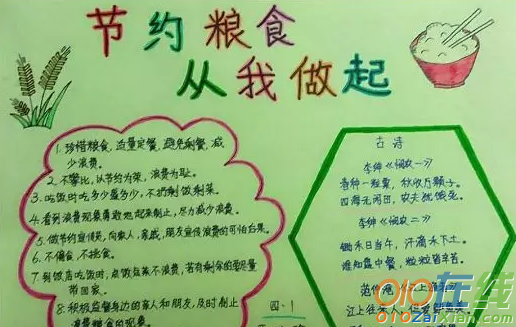 节约粮食
从我做起
1. 珍惜粮食,适量定餐,避免剩餐,减
少浪费。
2. 不攀比,从节约为荣,浪费为耻。
3. 吃饭时吃多少盛多少,不扔剩饭剩菜。
4. 看到浪费现象勇敢地起来制止,尽力减少浪费。
5. 做节约宣传员,向家人,亲戚,朋友宣传浪费的可怕后果。
6. 不偏食,不挑食。
7. 到饭店吃饭时,点饭点菜不浪费,若有剩余的要尽量
带回家。
8. 积极监督身边的亲人和朋友,及时制止
浪费粮食的现象。
古诗
李绅《悯农一》
春种一粒粟,秋收万颗子。
四海无闲田,农夫犹饿死。
李绅《悯农二》
锄禾日当午,汗滴禾下土。
谁知盘中餐,粒粒皆辛苦。
范仲淹《江上渔者》
江上往来人,但爱鲈鱼美。
四·1
010在线
010zaixian.com